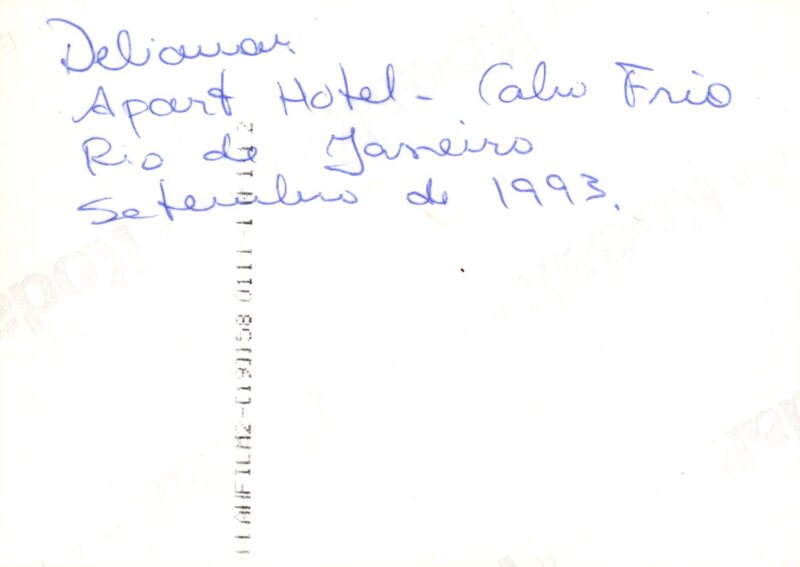 Deliamar
Apart Hotel - Cabo Frio
Rio de Janeiro
Setembro de 1993.
Kodak